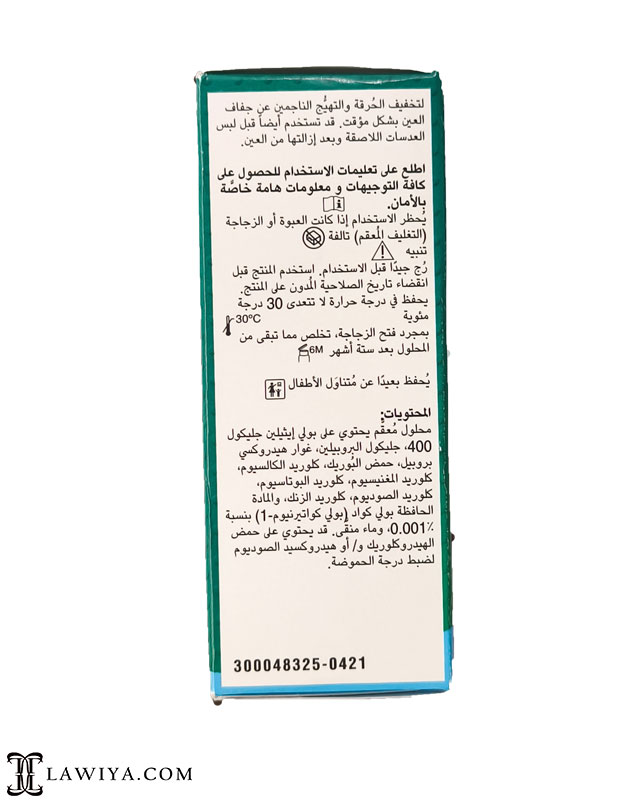 لتخفيف الحُرقة والتهيُّج الناجمين عن جفاف
العين بشكل مؤقت. قد تستخدم أيضاً قبل لبس
العدسات اللاصقة وبعد إزالتها من العين.
اطلع على تعليمات الاستخدام للحصول على
كافة التوجيهات و معلومات هامة خاصَّة
بالأمان.
يُحظر الاستخدام إذا كانت العبوة أو الزجاجة
(التغليف المُعقم) تالفة
تنبيه
رُج جيدًا قبل الاستخدام. استخدم المنتج قبل
انقضاء تاريخ الصلاحية المُدون على المنتج.
يحفظ في درجة حرارة لا تتعدى 30 درجة
مئوية
30°C
بمجرد فتح الزجاجة، تخلص مما تبقى من
المحلول بعد ستة أشهر 6M
يُحفظ بعيدًا عن مُتناوَل الأطفال
المحتويات:
محلول مُعقَّم يحتوي على بولي إيثيلين جليكول
400، جليكول البروبيلين، غوار هيدروكسي
بروبيل، حمض البُوريك، كلوريد الكالسيوم،
كلوريد المغنيسيوم، كلوريد البوتاسيوم،
كلوريد الصوديوم، كلوريد الزنك، والمادة
الحافظة بولي كواد (بولي كواتيرنيوم-1) بنسبة
0.001٪، وماء منقَّى. قد يحتوي على حمض
الهيدروكلوريك و/ أو هيدروكسيد الصوديوم
لضبط درجة الحموضة.
300048325-0421
LAWIYA.COM